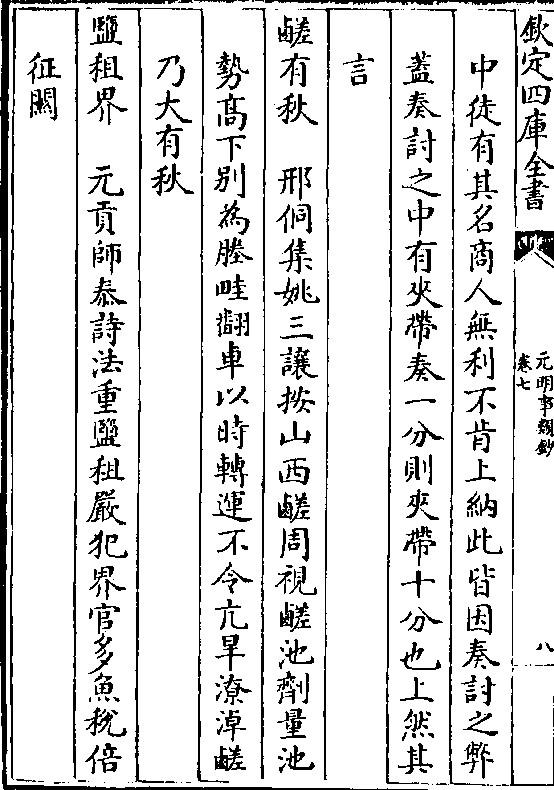 欽定四庫全書
元明事類鈔
卷七
八
中徒有其名商人無利不肯上納此皆因奏討之弊
葢奏討之中有夾帶奏一分則夾帶十分也上然其
言
鹺有秋　邢侗集姚三讓按山西鹺周視鹺池劑量池
勢髙下别為塍畦翻車以時轉運不令亢旱潦淖鹺
乃大有秋
鹽租界　元貢師泰詩法重鹽租嚴犯界官多魚稅倍
征闗